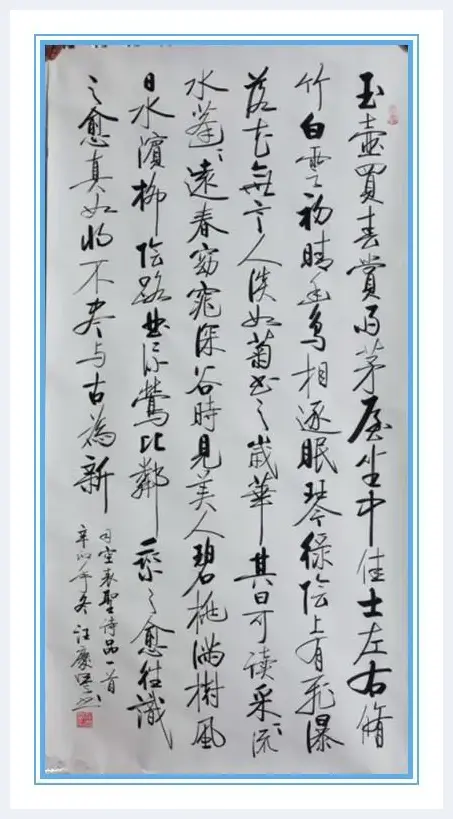 玉壺買春賞雨茅屋坐中佳士左右脩
竹白雲初晴幽鳥相逐眠琴綠陰上有飛瀑
落花無言人淡如菊書之歲華其曰可读采々流
水蓬々遠春窈窕深谷時見美人碧桃滿樹風
日水濱柳陰路曲流鶯比鄰乘之愈往識
之愈真如将不尽与古為新
司空表聖诗品一首
年冬汪慶书